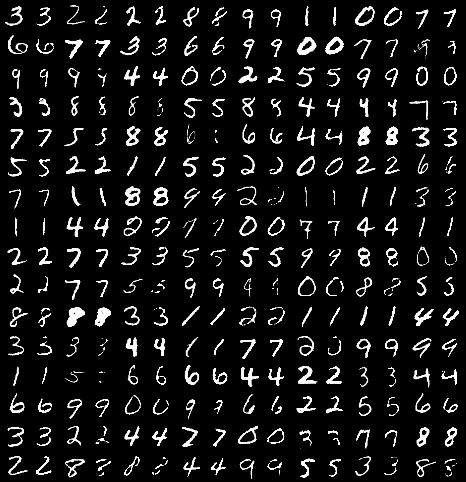 3 3 2 2 2 2 8 8 9 9 1 1 0 0 7 7
6 6 7 7 3 3 6 6 9 9 0 0 7 7 9
9 9 9 9 4 4 0 0 2 2 5 5 9 9 0 0
3 3 8 8 8 8 5 5 8 8 4 4 4 4 7 7
7 7 5 5 8 8 6 6 6 4 4 8 8 3 3
5 5 2 2 1 1 5 5 2 2 0 0 2 2 6 6
7 7 1 1 8 8 9 9 2 2 1 1 1 1 3 3
1 1 4 4 2 2 7 7 0 0 7 7 4 4 1 1
2 2 7 7 3 3 5 5 5 5 9 9 8 8 0 0
2 2 7 7 5 5 9 9 9 9 0 0 8 8 5 5
8 8 8 8 3 3 1 1 2 2 1 1 1 1 4 4
3 3 3 3 4 4 1 1 7 7 2 0 9 9 9 9
1 1 5 6 6 6 6 4 4 2 2 3 3 4 4
6 6 9 9 0 0 9 7 6 6 2 2 5 5 6 6
3 3 2 2 4 4 7 7 0 0 3 3 7 7 8 8
2 2 8 8 8 8 4 4 9 9 5 5 3 3 8 8